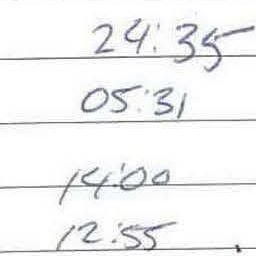 24:35
05:31
14:00
12:55